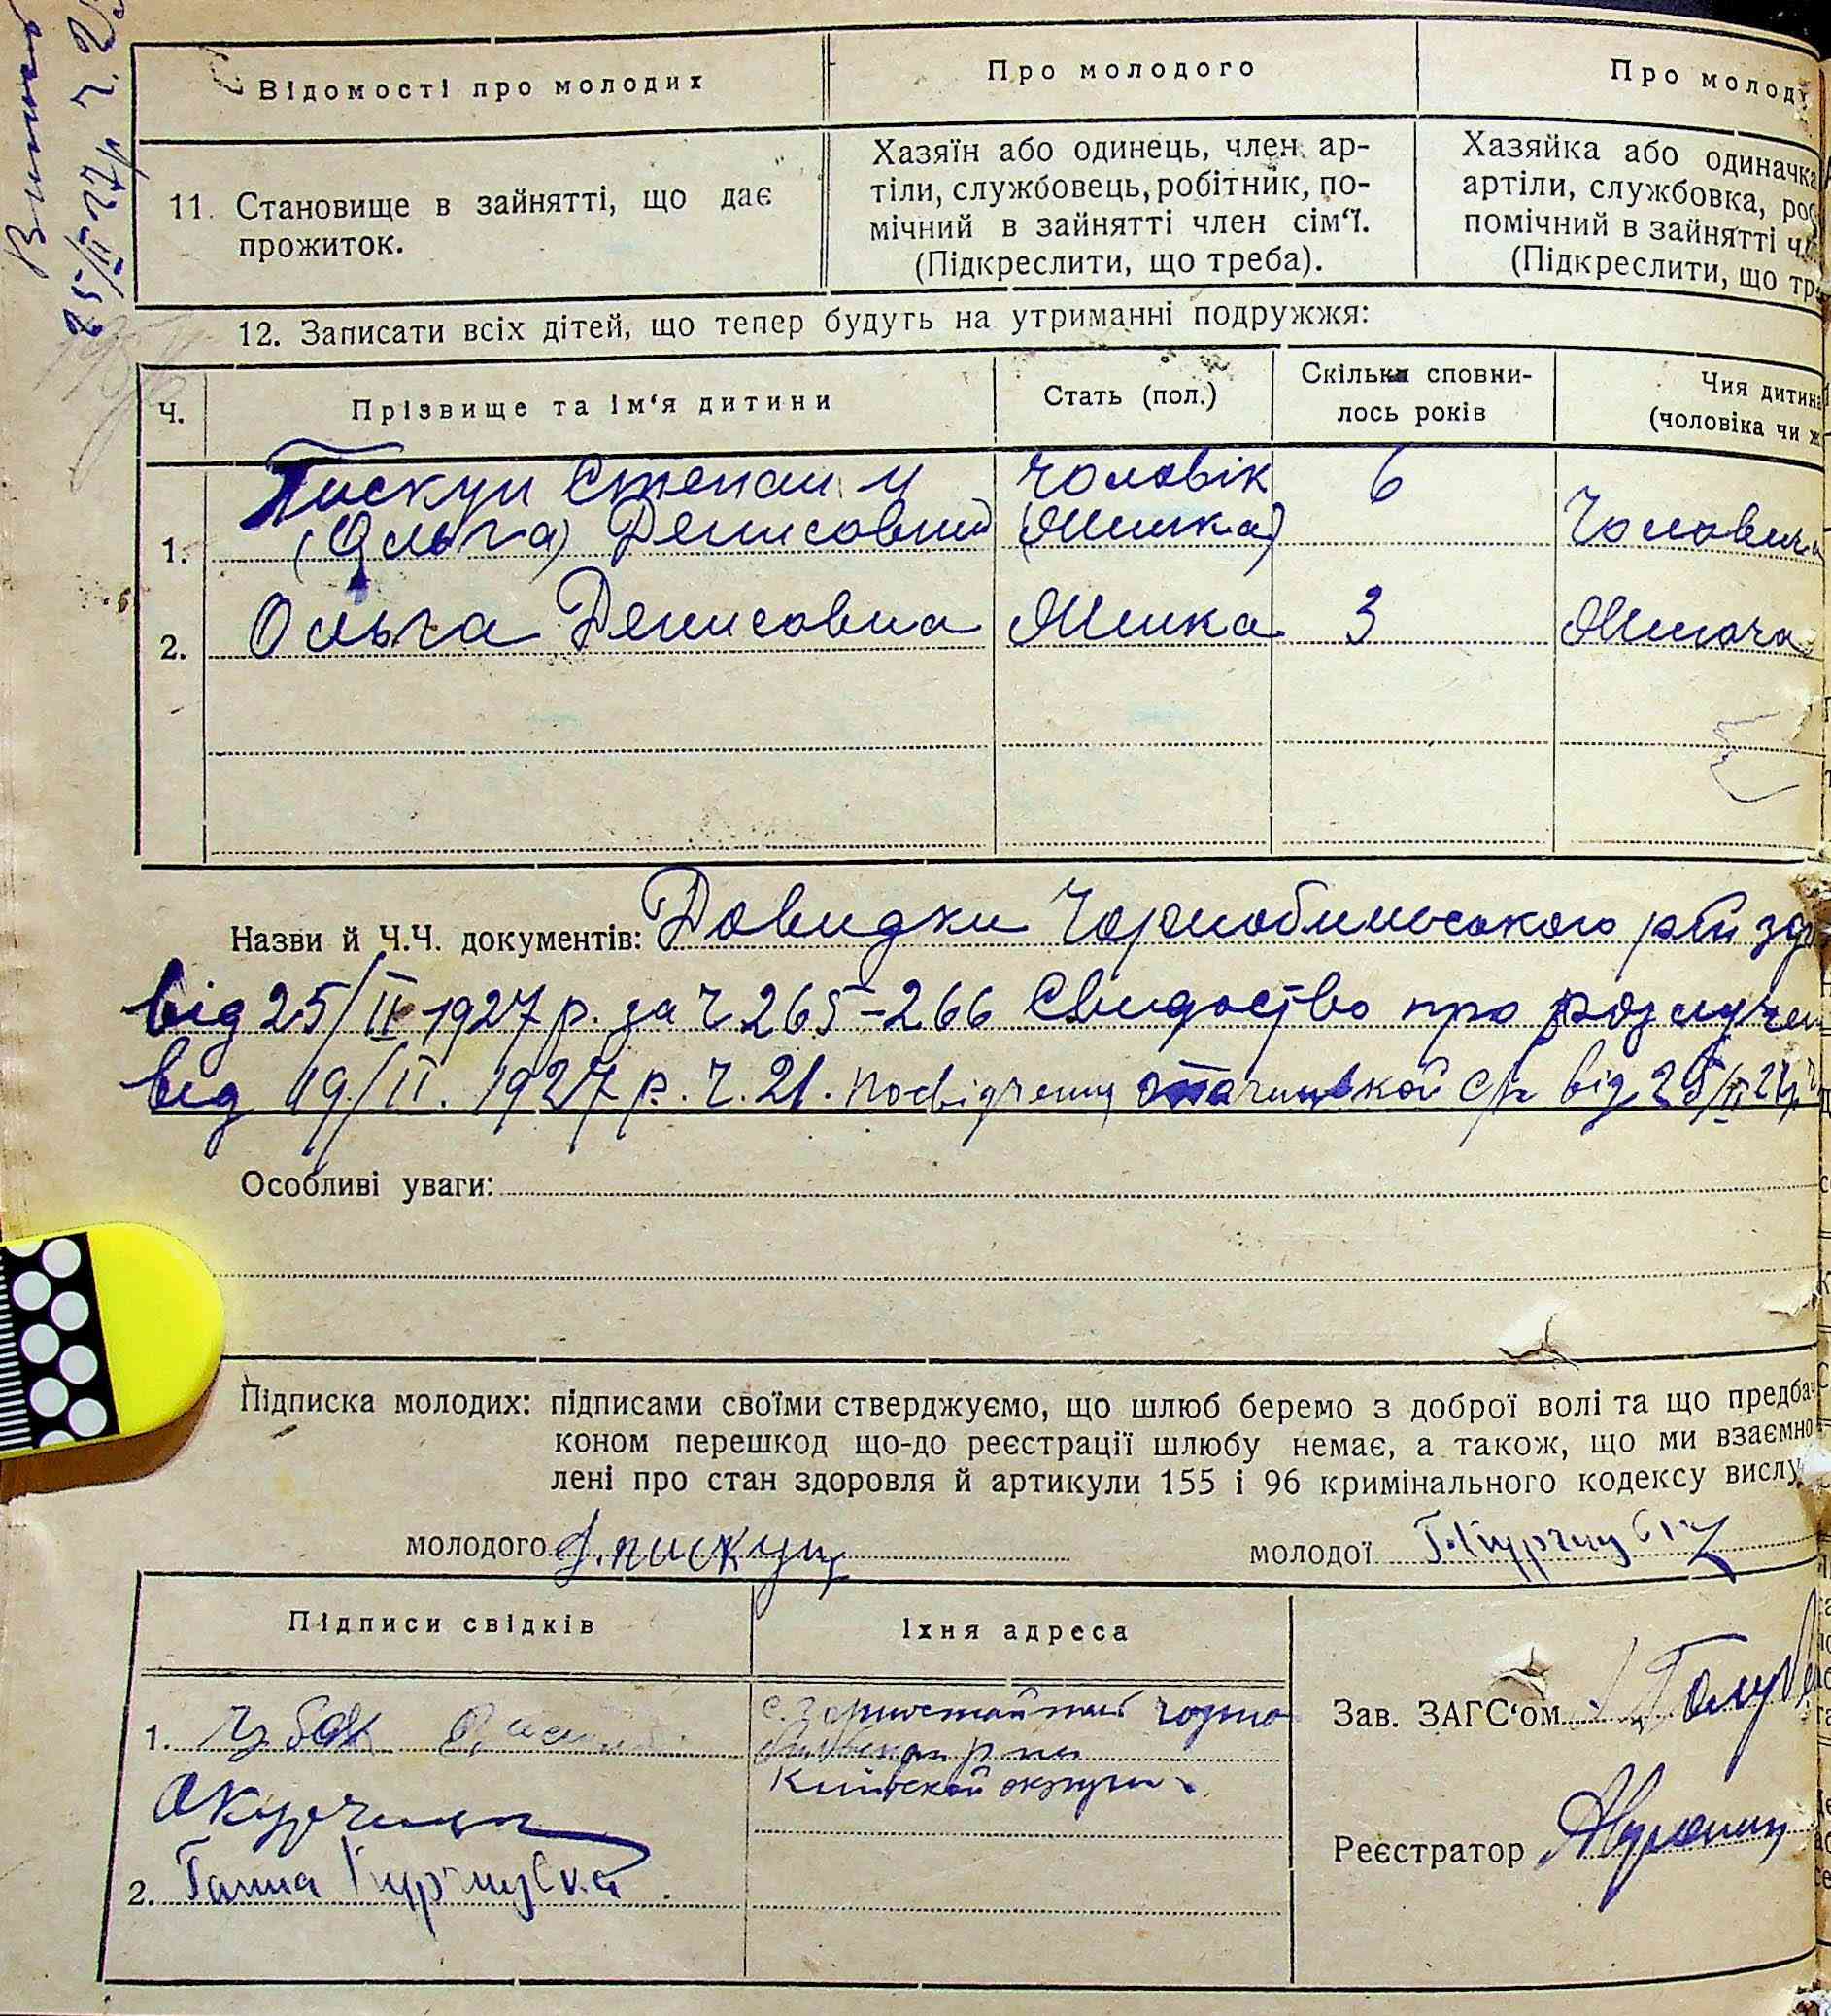 25/II 27р ч. 2
Відомості про молодих
Про молодого
Про молоду
11. Становище в зайнятті, що дає
прожиток.
Хазяїн або одинець, член ар-
тіли, службовець, робітник, по-
мічний в зайнятті член сім'ї.
(Підкреслити, що треба).
Хазяйка або одиначка
артіли, службовка, роб
помічний в зайнятті чл
(Підкреслити, що тре
12. Записати всіх дітей, що тепер будуть на утриманні подружжя:
Ч.
Прізвище та ім'я дитини
Стать (пол.)
Скільки сповни-
лось років
Чия дитина
(чоловіка чи ж
Пискун Степан и чоловік 6
1. (Ольга) Денисовни (Жинка) Чоловича
2. Ольга Денисовна Жинка 3 Жиноча
Назви й Ч.Ч. документів: Довидки Чорнобильського
від 25/II 1927 р. за ч 265-266 Свидоство про розлучен
від 19/II. 1927 р. ч. 21. посвідчення с/р від 25/II 27р
Особливі уваги:
Підписка молодих: підписами своїми стверджуємо, що шлюб беремо з доброї волі та що предба
коном перешкод що-до реєстрації шлюбу немає, а також, що ми взаємно
лені про стан здоровля й артикули 155 і 96 кримінального кодексу вислу
молодого Д. пискун
молодої
Підписи свідків
Їхня адреса
1.
с. чорно
р на
Київской округи
2. Ганна
Зав. ЗАГС'ом
Реєстратор